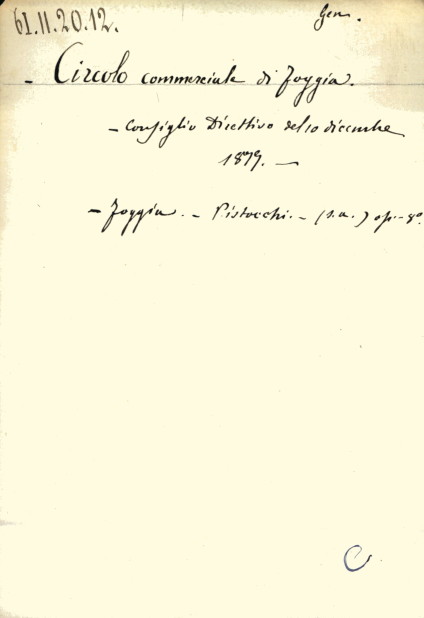 61.II.20.12.
Gen.
- Circolo commerciale di Foggia.
- Consiglio Direttivo del 10 dicembre
1879. -
- Foggia. - Pistocchi. - (s.a.) op. - 8º
C